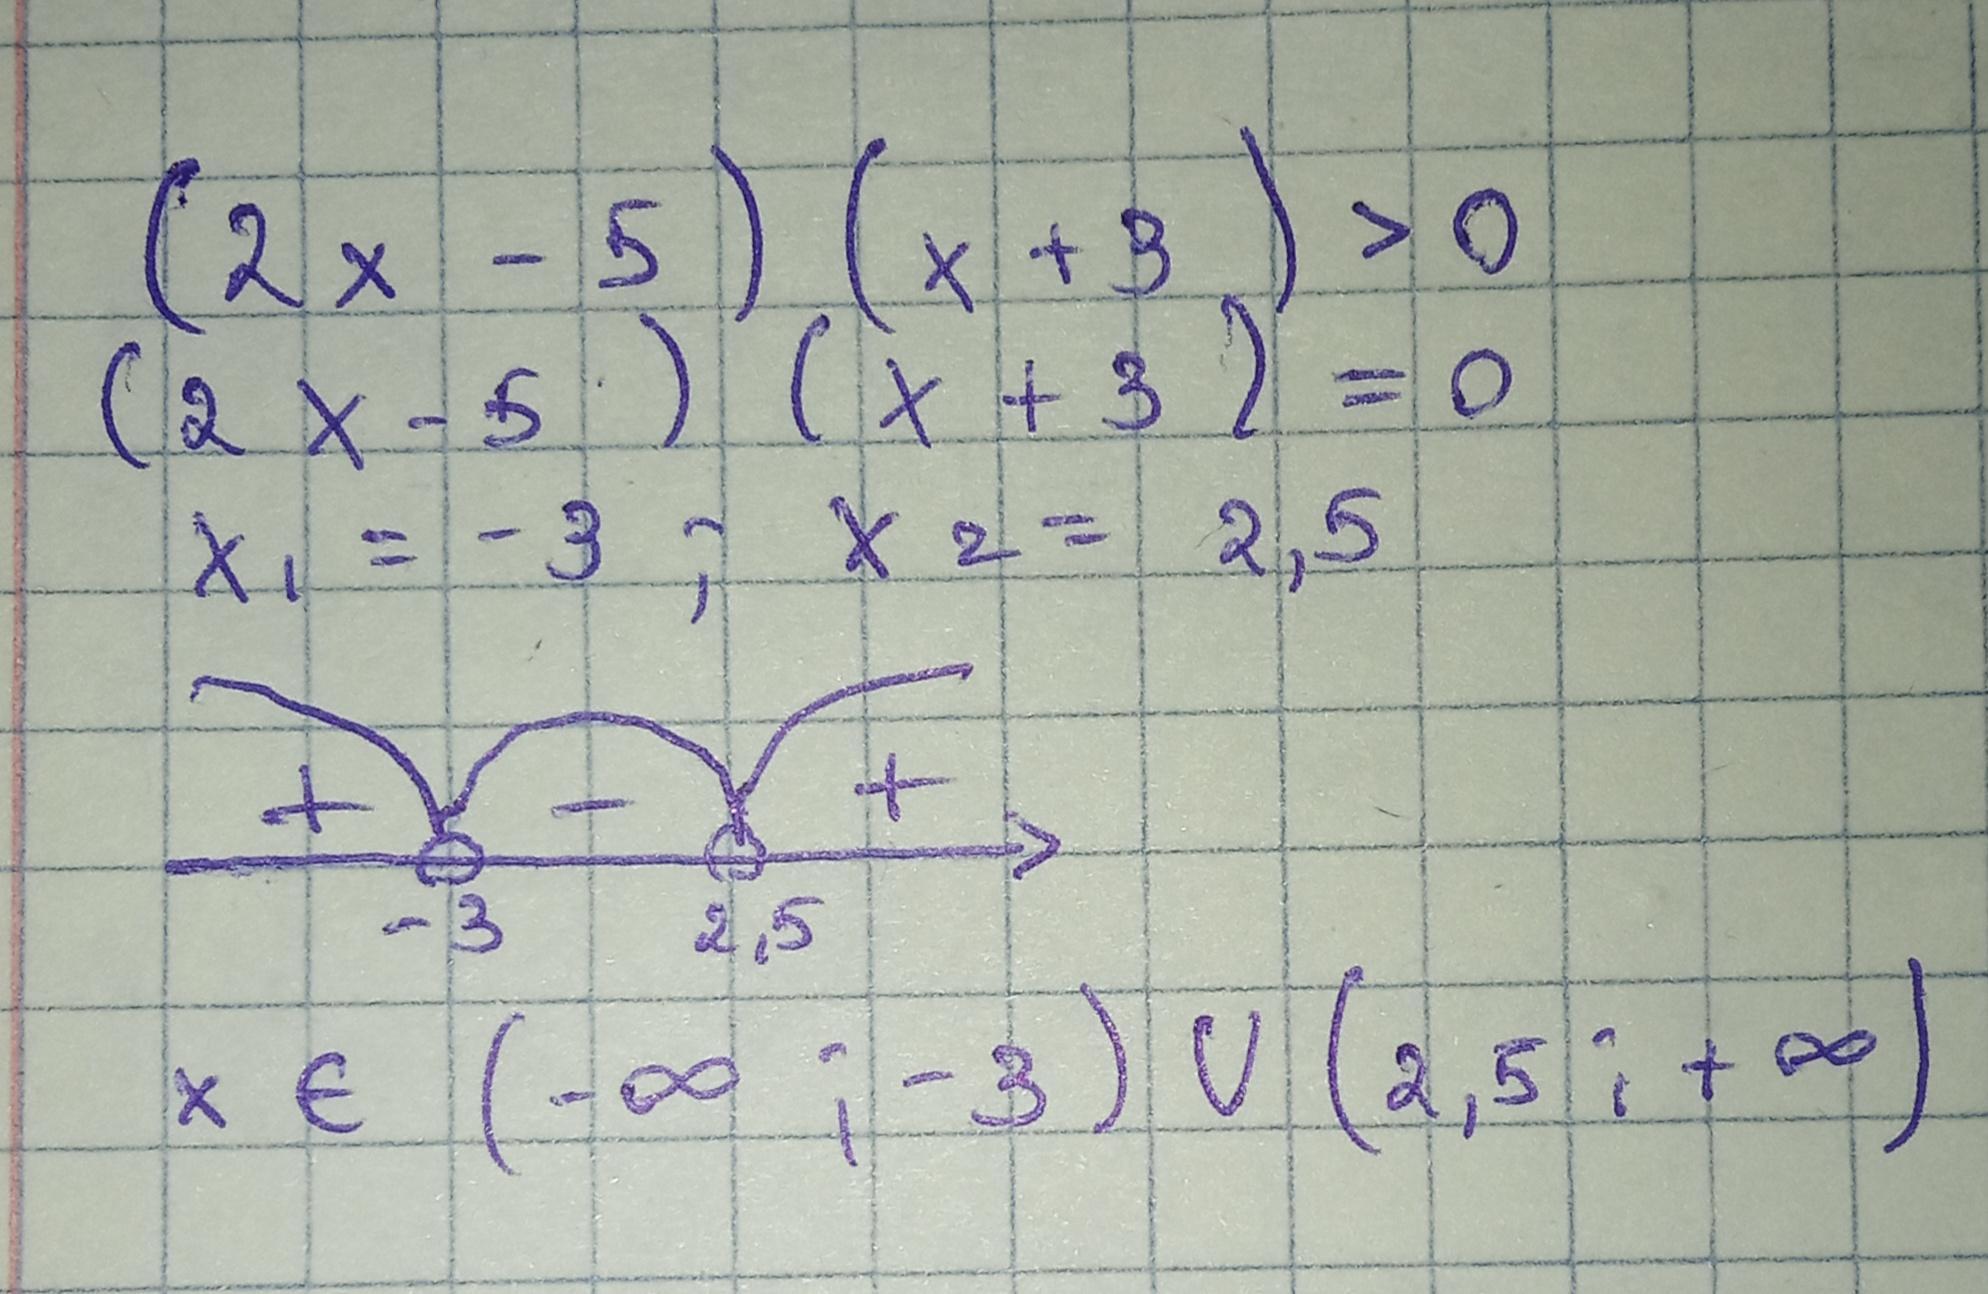 (2x - 5) (x + 3) > 0
(2x - 5) (x + 3) = 0
x₁ = -3 ; x₂ = 2,5
+ - +
-3 2,5
x ∈ (-∞ ; -3) ∪ (2,5 ; +∞)